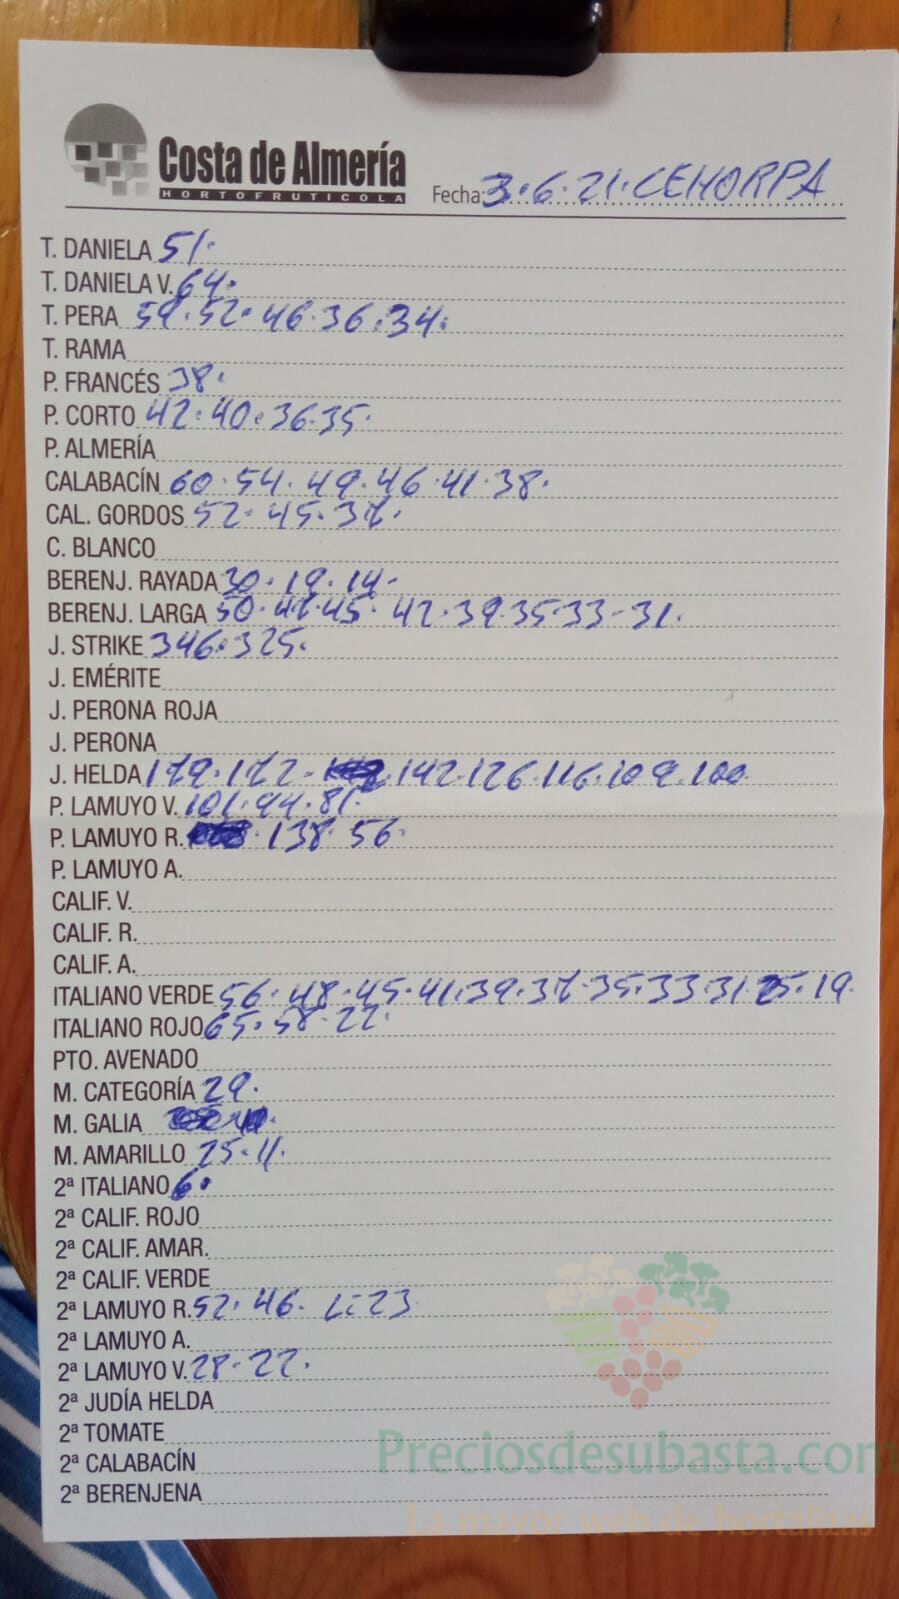 Costa de Almería
HORTOFRUTICOLA
Fecha: 3.6.21. CEHORPA
T. DANIELA 51.
T. DANIELA V. 64.
T. PERA 59.52.46.36.34.
T. RAMA
P. FRANCÉS 38.
P. CORTO 42.40.36.35.
P. ALMERÍA
CALABACÍN 60.54.49.46.41.38.
CAL. GORDOS 52.45.37.
C. BLANCO
BERENJ. RAYADA 30.19.14-
BERENJ. LARGA 50.47.45.42.39.35.33-31.
J. STRIKE 346.325.
J. EMÉRITE
J. PERONA ROJA
J. PERONA
J. HELDA 179.172-142.126.116.109.100.
P. LAMUYO V. 101.94.81.
P. LAMUYO R. 138.56.
P. LAMUYO A.
CALIF. V.
CALIF. R.
CALIF. A.
ITALIANO VERDE 56.48.45.41.39.37.35.33.31.25.19.
ITALIANO ROJO 65.58.22.
PTO. AVENADO
M. CATEGORÍA 29.
M. GALIA
M. AMARILLO 25.11.
2ª ITALIANO 6.
2ª CALIF. ROJO
2ª CALIF. AMAR.
2ª CALIF. VERDE
2ª LAMUYO R. 52.46. L-23
2ª LAMUYO A.
2ª LAMUYO V. 28.22.
2ª JUDÍA HELDA
2ª TOMATE
Preciosdesubasta.com
2ª CALABACÍN
2ª BERENJENA
La mayor web de hortalizas